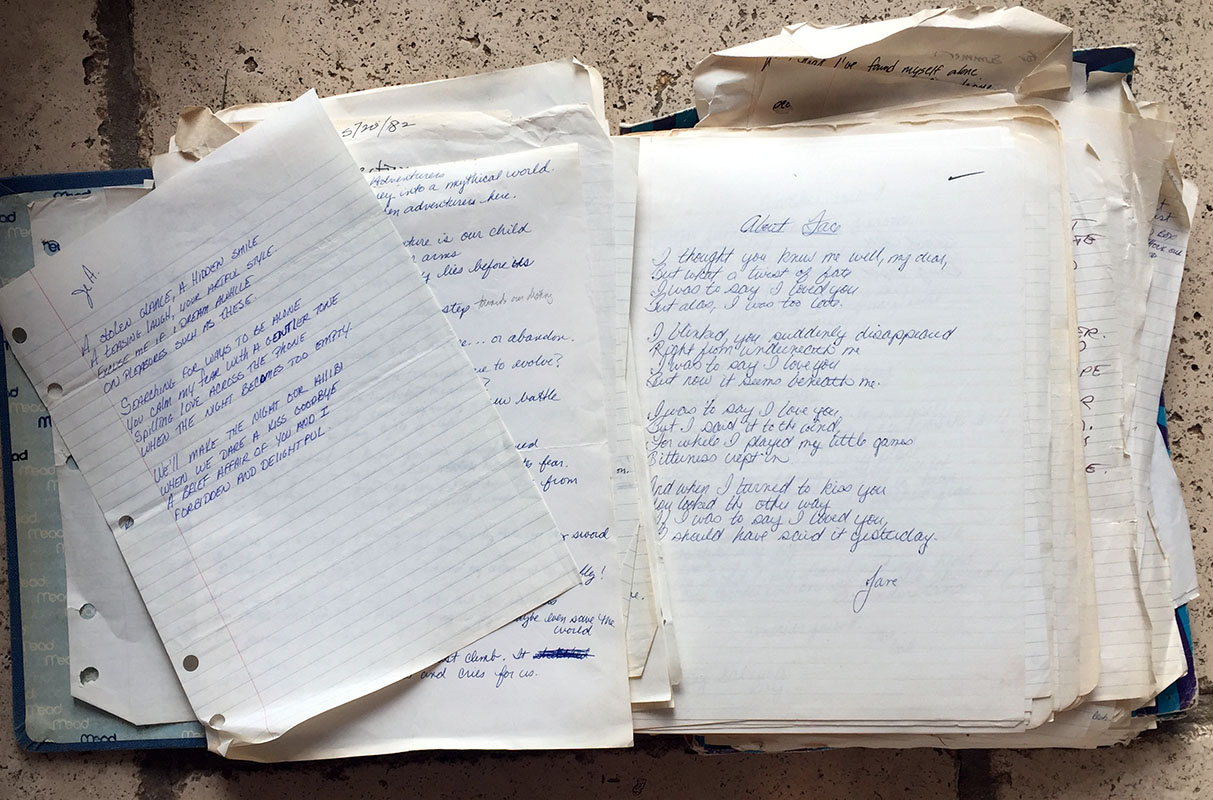 JeA.
A STOLEN GLANCE, A HIDDEN SMILE
A TEASING LAUGH, YOUR ARTFUL STYLE.
EXCUSE ME IF I DREAM AWHILE
ON PLEASURES SUCH AS THESE.
SEARCHING FOR WAYS TO BE ALONE
YOU CALM MY FEAR WITH A GENTLER TONE
SPILLING LOVE ACROSS THE PHONE
WHEN THE NIGHT BECOMES TOO EMPTY.
WE'LL MAKE THE NIGHT OUR ALIBI
WHEN WE DARE A KISS GOODBYE
A BRIEF AFFAIR OF YOU AND I
FORBIDDEN AND DELIGHTFUL.
5/20/82
Adventurers
ey into a mythical world.
en adventurers here.
ture is our child
arms
lies before us
step
... or abandon.
to evolve?
battle
fear.
from
sword
maybe even save the
world
st climb. It
and cries for us.
mead
mead
mead
mead
I've found myself alone.
About Face
I thought you knew me well, my dear,
But what a twist of fate
I was to say I loved you
But alas, I was too late.
I blinked, you suddenly disappeared
Right from underneath me
I was to say I love you
But now it seems beneath me.
I was to say I love you,
But I said it to the wind,
For while I played my little games
Bitterness crept in.
And when I turned to kiss you
You looked the other way
If I was to say I loved you,
I should have said it yesterday.
Jane